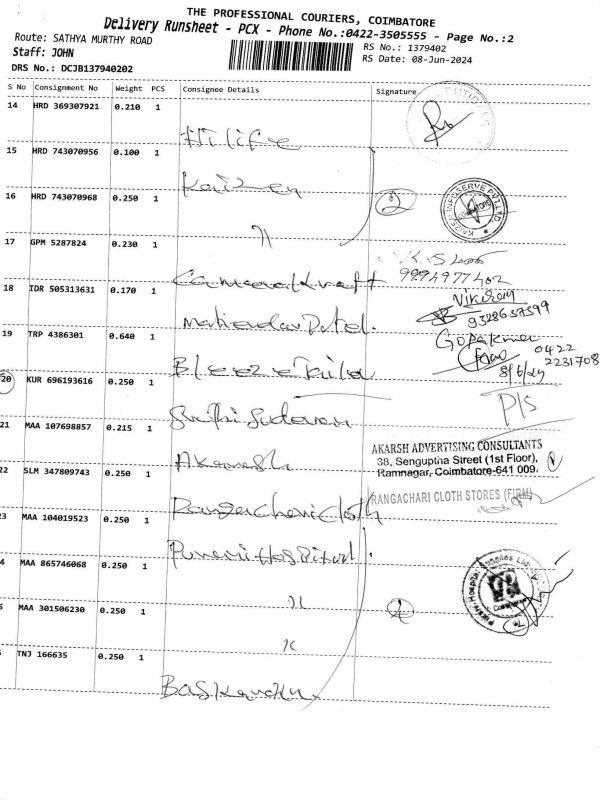 THE PROFESSIONAL COURIERS, COIMBATORE
Delivery Runsheet - PCX - Phone No.:0422-3505555 - Page No.:2
Route: SATHYA MURTHY ROAD
RS No.: 1379402
Staff: JOHN
RS Date: 08-Jun-2024
DRS No.: DCJB137940202
S No Consignment No Weight PCS Consignee Details Signature
14 HRD 369307921 0.210 1
Hilife
15 HRD 743070956 0.100 1
Kaizen
16 HRD 743070968 0.250 1
2
KAIZEN INFOSERVE PVT LTD
COIMBATORE
17 GPM 5287824 0.230 1
Camera Kraft
9994977402
18 IDR 505313631 0.170 1
Vikram
9328657599
Mahendar Patel.
19 TRP 4386301 0.640 1
Gopakumar
0422
2231708
8/6/24
20 KUR 696193616 0.250 1
P/S
21 MAA 107698857 0.215 1
Akarsh
AKARSH ADVERTISING CONSULTANTS
38, Senguptha Street (1st Floor),
Ramnagar, Coimbatore-641 009.
22 SLM 347809743 0.250 1
Rangachari Cloth
RANGACHARI CLOTH STORES (FIRM)
23 MAA 104019523 0.250 1
Hospital
4 MAA 865746068 0.250 1
5 MAA 301506230 0.250 1
TNJ 166635 0.250 1